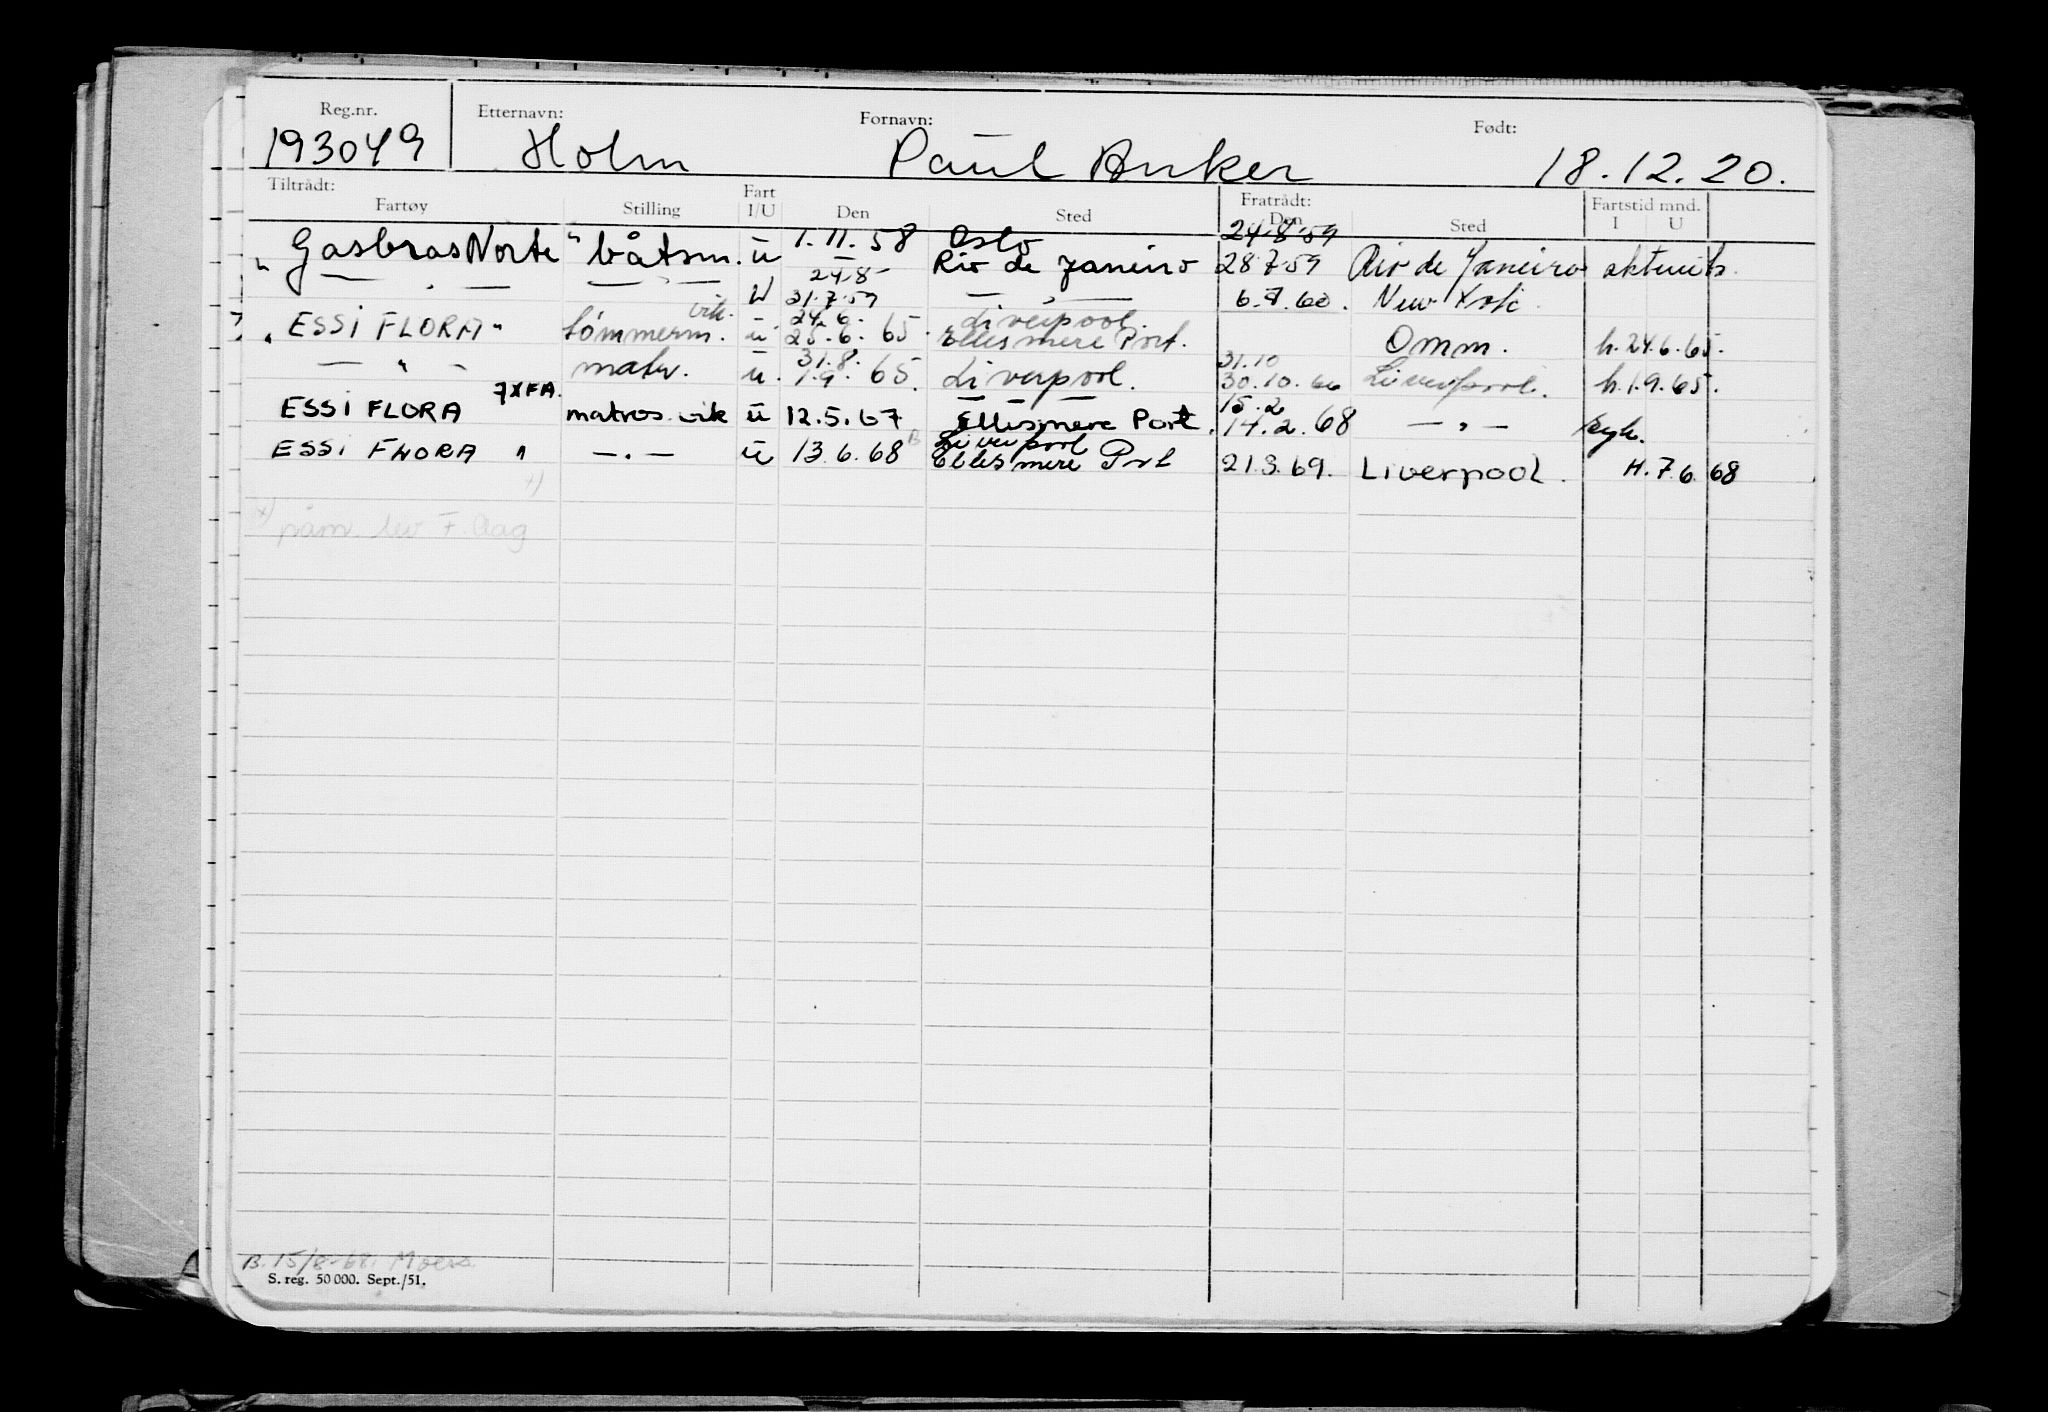 Reg.nr. Etternavn: Fornavn: Født:
193049 Holm Paul Anker 18.12.20.
Tiltrådt: Fratrådt:
Fartøy Stilling Fart I/U Den Sted Den Sted Fartstid mnd. I U
24.8.59
"Gasbras Norte" båtsm. u 1.11.58 Oslo 28.7.59 Rio de Janeiro
24.8 Rio de Janeiro
— " — — " — u 31.7.59 — " — 6.7.60. New York
vik. 24.6. Liverpool.
"ESSI FLORA" tømmerm. u 25.6.65. Ellesmere Port. Omm. h.24.6.65.
31.8. 31.10
— " — matr. u. 1.9.65. Liverpool. 30.10.66 Liverpool. h.1.9.65.
7XFA. 15.2
ESSI FLORA matros vik u 12.5.67 Ellesmere Port. 14.2.68 — " — syk.
Liverpool
ESSI FLORA " — " — u 13.6.68 Ellesmere Port 21.3.69. Liverpool. H.7.6.68
x)
x) påm. lev F. Aag
B. 15/8-68. Moers
S. reg. 50 000. Sept./51.